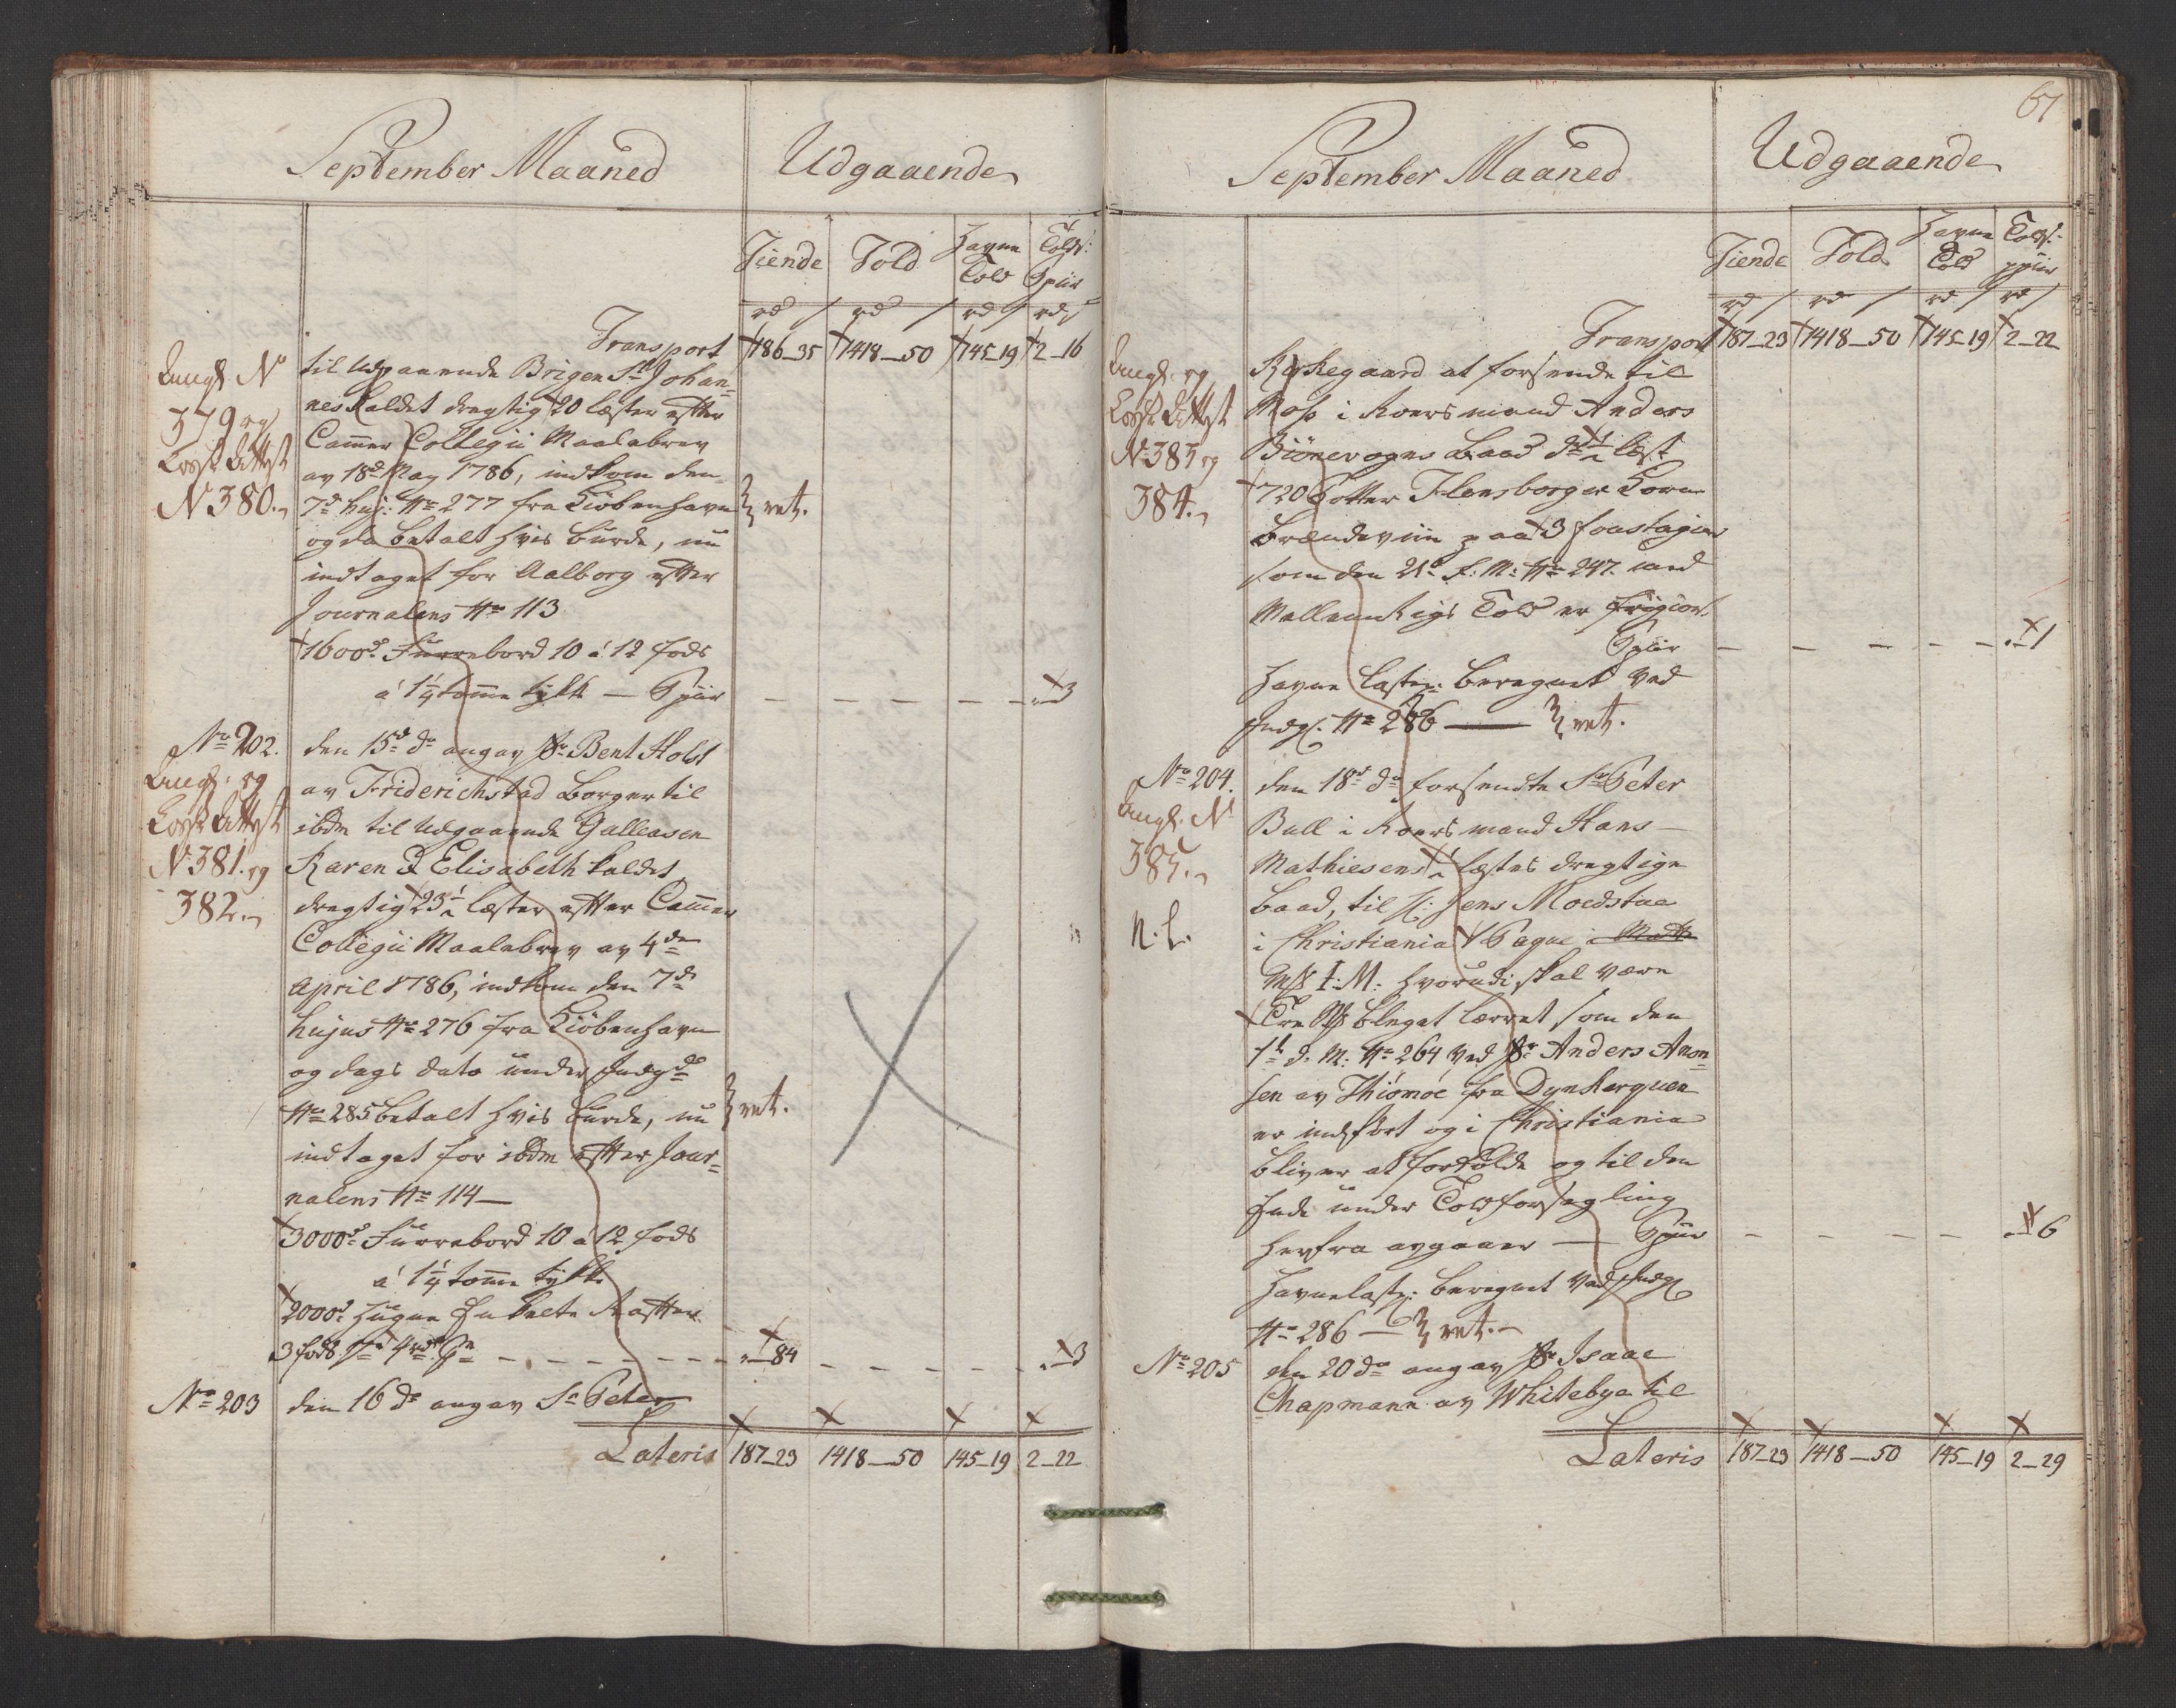 September Maaned
Udgaaende
Tiende Told Havne Told Told: Spiir
rd s rd s rd s rd s
Transport 186_35 1418_50 145_19 2_16
Angf. No
379 og
Attest
N 380.
til Udgaaende Brigen St Johan=
nes kaldet dregtig 20 læster efter
Cammer Collegii Maalebrev
av 18de May 1786, indkom den
7de huj: No 277 fra Kiöbenhavn
ret.
og da betalt hvis burde, nu
indtaget for Aalborg efter
Journalens No 113
1600d. Furrebord 10 á 12 fods
á 1 1/4 tomme tykk — Spiir — — — — 3
No 202.
Angf. og
Attest
N 381. og
382.
den 15de do angav Sr. Bent Holst
av Friderichstad Borger til
ibdm til Udgaaende Galleasen
Karen & Elisabeth kaldet
dregtig 23 1/2 læster efter Cammer
Collegii Maalebrev av 4de
April 1786, indkom den 7de
hujus No 276 fra Kiöbenhavn
og dags dato under Indgde
No 285 betalt hvis burde, nu
ret.
indtaget for ibdm efter Jour=
nalens No 114 —
3000d. Furrebord 10 á 12 fods
á 1 1/4 tomme tykk
2000d. Hugne Enkelte
3 fods — — — 84 — — — 3
No 203
den 16 do angav Sr Peter
Lateris 187_23 1418_50 145_19 2_22
67
September Maaned
Udgaaende
Tiende Told Havne Told Told: Spiir
rd s rd s rd s rd s
Transport 187_23 1418_50 145_19 2_22
Angf. og
Attest
No 383 og
384.
Kirkegaard at forsende til
Moss i Koersmand Anders
Biönevogns Baad dr 1 1/2 læst
720 Potter Flensborger Korn
Brændeviin paa 3 foustagier
som den 21de f: M: No 247. med
Mellemrigs Told er
Spiir — — — — 1
Havne laster: Beregnet Ved
Indg. No 286 — ret.
No 204.
Angf. No
385.
N. L.
den 18de do forsendte Sr Peter
Bull i Koersmand Hans
Mathiesens 1 1/2 læstes dregtige
Baad, til Hr: Jens Moedstue
i Christiania 1 Paque
I: M: hvorudi skal være
Tre bleget lærret som den
1te d. M. No 264 Ved Sr Anders Anon=
sen av Thiömöe fra Dynkerquen
er indført og i Christiania
bliver at fortolde og til den
Ende under Toldforsegling
herfra avgaaer — Spiir — — — — 6
Havnelast: beregnet Ved Indg
No 286 — ret.
No 205
den 20 do angav Sr Isaac
Chapmann av Whitebye til
Lateris 187_23 1418_50 145_19 2_29